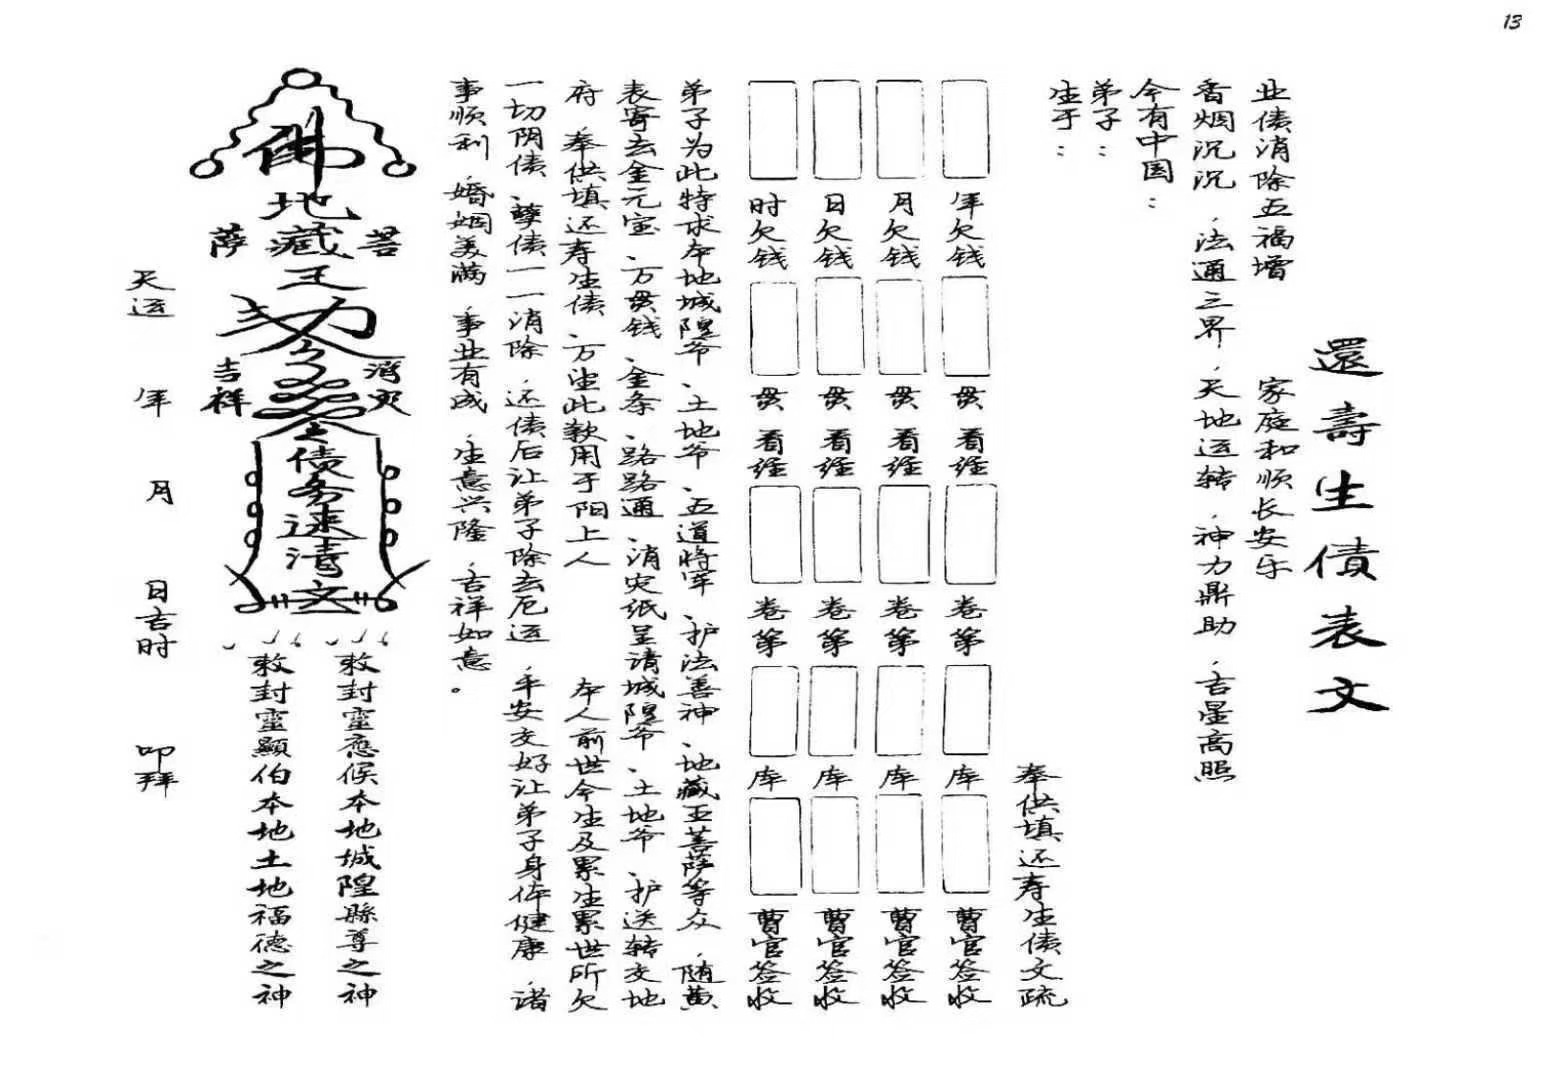 13
還壽生債表文
业债消除五福增 家庭和顺长安乐
香烟沉沉，法通三界，天地运转，神力鼎助，吉星高照
今有中国：
弟子：
生于：
奉供填还寿生债文疏
年欠钱 贯看经 卷第 库 曹官签收
月欠钱 贯看经 卷第 库 曹官签收
日欠钱 贯看经 卷第 库 曹官签收
时欠钱 贯看经 卷第 库 曹官签收
弟子为此特求本地城隍爷、土地爷、五道将军、护法善神、地藏王菩萨等众，随黄
表寄去金元宝、万贯钱、金条、路路通、消灾纸呈请城隍爷、土地爷、护送转交地
府 奉供填还寿生债、万望此款用于阳上人 本人前世今生及累生累世所欠
一切阴债、孽债一一消除，还债后让弟子除去厄运，平安交好让弟子身体健康，诸
事顺利，婚姻美满，事业有成，生意兴隆，吉祥如意。
佛
地
菩藏萨
王
消灾 吉祥
债务速清
文
敕封靈應候本地城隍縣尊之神
敕封靈顯伯本地土地福德之神
天运 年 月 日吉时 叩拜